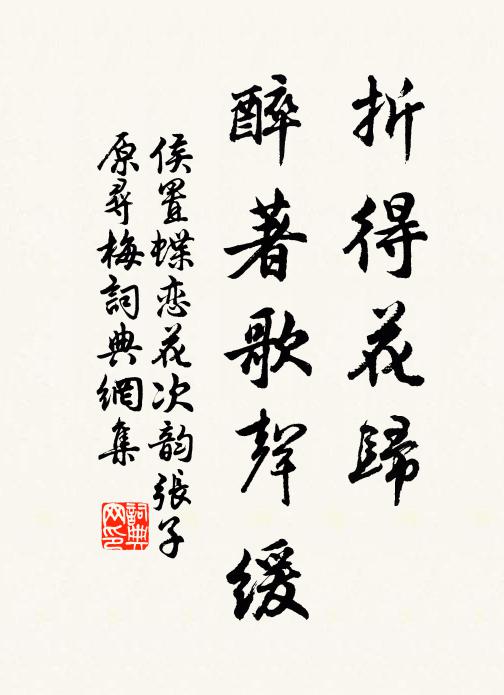 折得花歸
醉著歌聲緩
侯置蝶恋花次韵張子
原尋梅詞典網集
詞典
网印